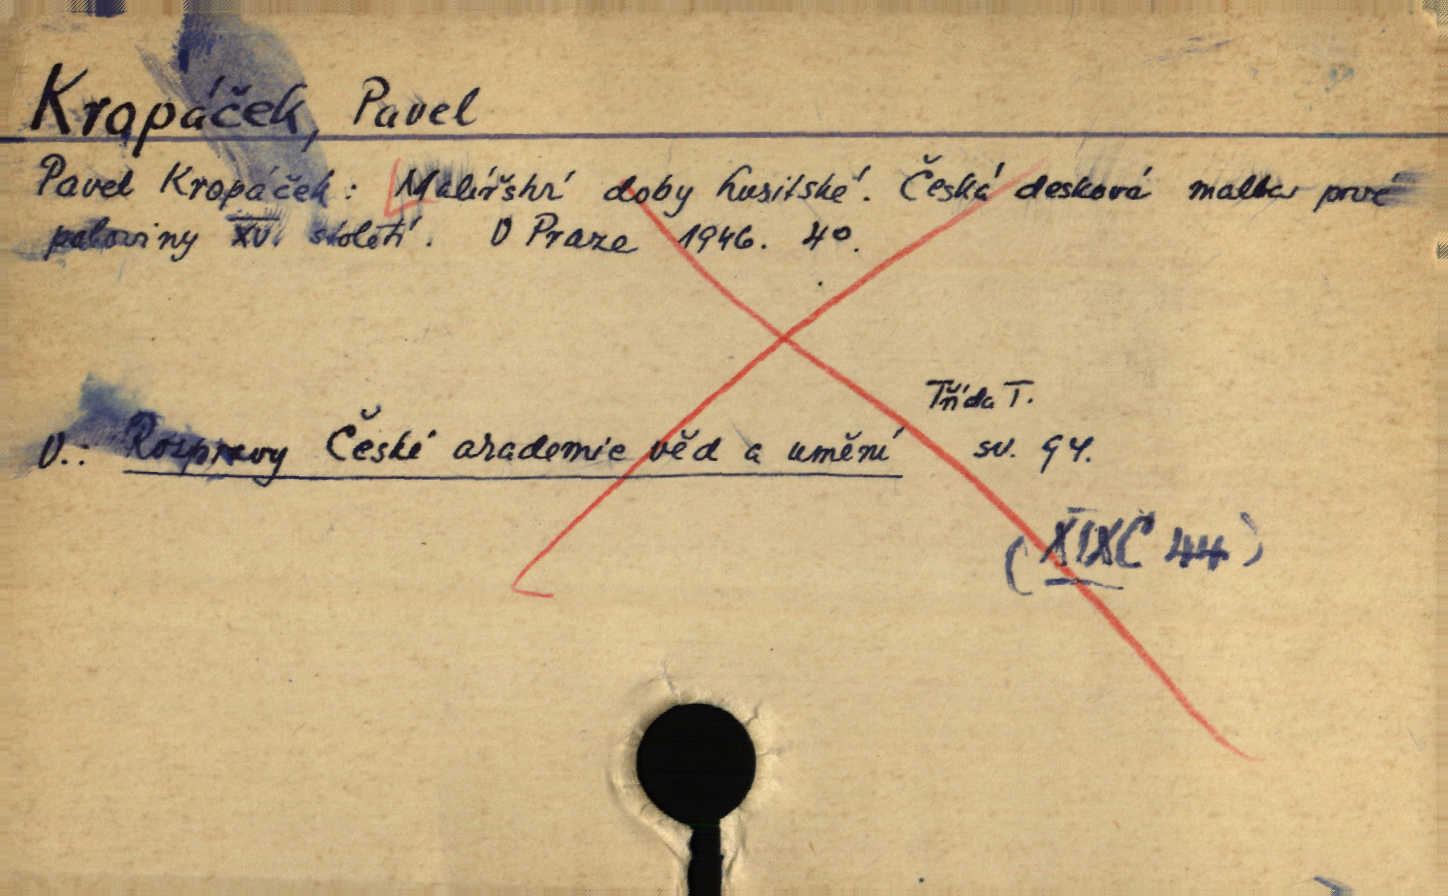 Kropáček, Pavel
Pavel Kropáček: Malířství doby husitské. Česká desková malba prvé
poloviny XV. století. V Praze 1946. 4°.
Třída I.
V.: Rozpravy České akademie věd a umění sv. 94.
(XIXC 44)